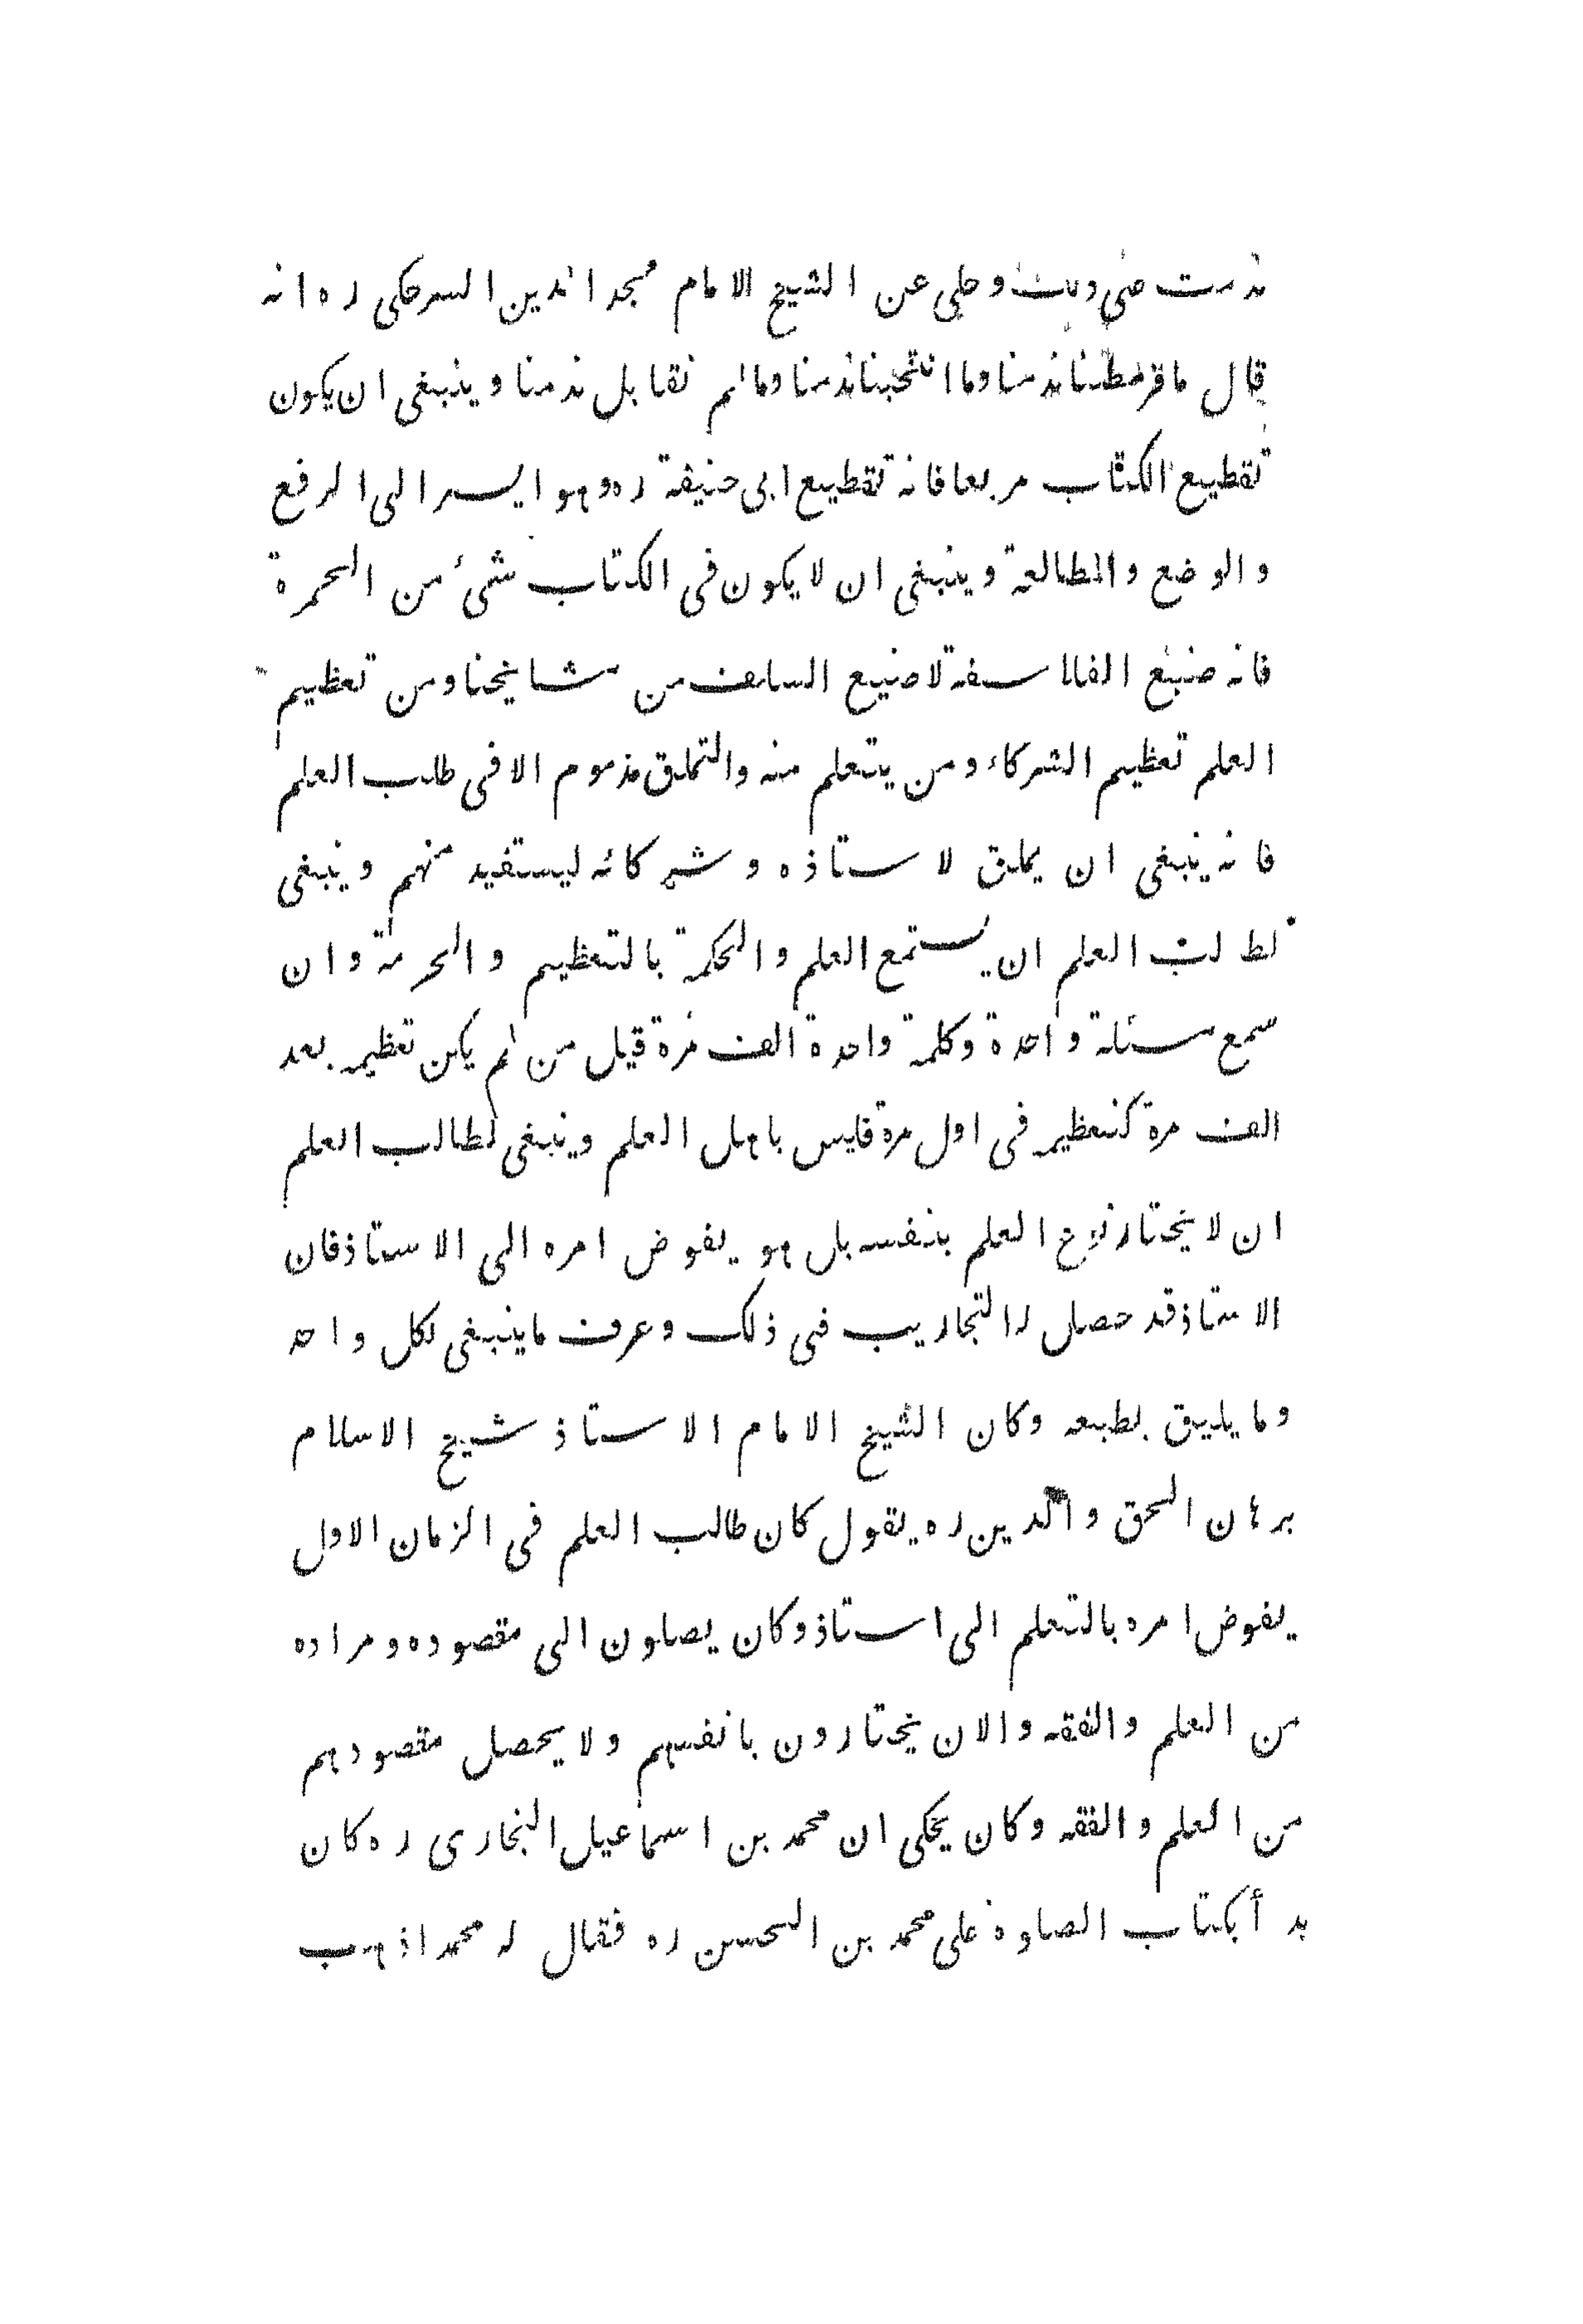 ندمت وحكى عن الشيخ الامام مجد الدين السرحكى ره انه
قال ما قرمطنا ندمنا وما انتخبنا ندمنا وما لم نقابل ندمنا وينبغى ان يكون
تقطيع الكتاب مربعا فانه تقطيع ابى حنيفة ره وهو ايسر الى الرفع
والوضع والمطالعة وينبغى ان لا يكون فى الكتاب شئ من الحمرة
فانه صنيع الفلاسفة لا صنيع السلف من مشايخنا ومن تعظيم
العلم تعظيم الشركاء ومن يتعلم منه والتملق مذموم الا فى طلب العلم
فانه ينبغى ان يملق لاستاذه وشركائه ليستفيد منهم وينبغى
لطالب العلم ان يستمع العلم والحكمة بالتعظيم والحرمة وان
سمع مسئلة واحدة وكلمة واحدة الف مرة قيل من لم يكن تعظيمه بعد
الف مرة كتعظيمه فى اول مرة فليس باهل العلم وينبغى لطالب العلم
ان لا يختار نوع العلم بنفسه بل هو يفوض امره الى الاستاذ فان
الاستاذ قد حصل له التجاريب فى ذلك وعرف ما ينبغى لكل واحد
وما يليق بطبعه وكان الشيخ الامام الاستاذ شيخ الاسلام
برهان الحق والدين ره يقول كان طالب العلم فى الزمان الاول
يفوض امره بالتعلم الى استاذ وكان يصلون الى مقصوده ومراده
من العلم والفقه والان يختارون بانفسهم ولا يحصل مقصودهم
من العلم والفقه وكان يحكى ان محمد بن اسماعيل البخارى ره كان
بدأ بكتاب الصلوة على محمد بن الحسن ره فقال له محمد اذهب